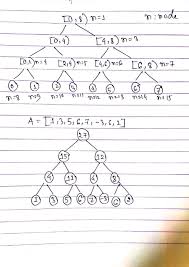 [0,8) n=1 n : node
[0,4) [4,8) n=3
[0,2) n=4 [2,4) n=5 [4,6) n=6 [6,8) n=7
0 1 2 3 4 5 6 7
n=8 n=9 n=10 n=11 n=12 n=13 n=14 n=15
A = [1,3,5,6,7,-3,6,2]
27
15 12
4 11 4 8
1 3 5 6 7 -3 6 2